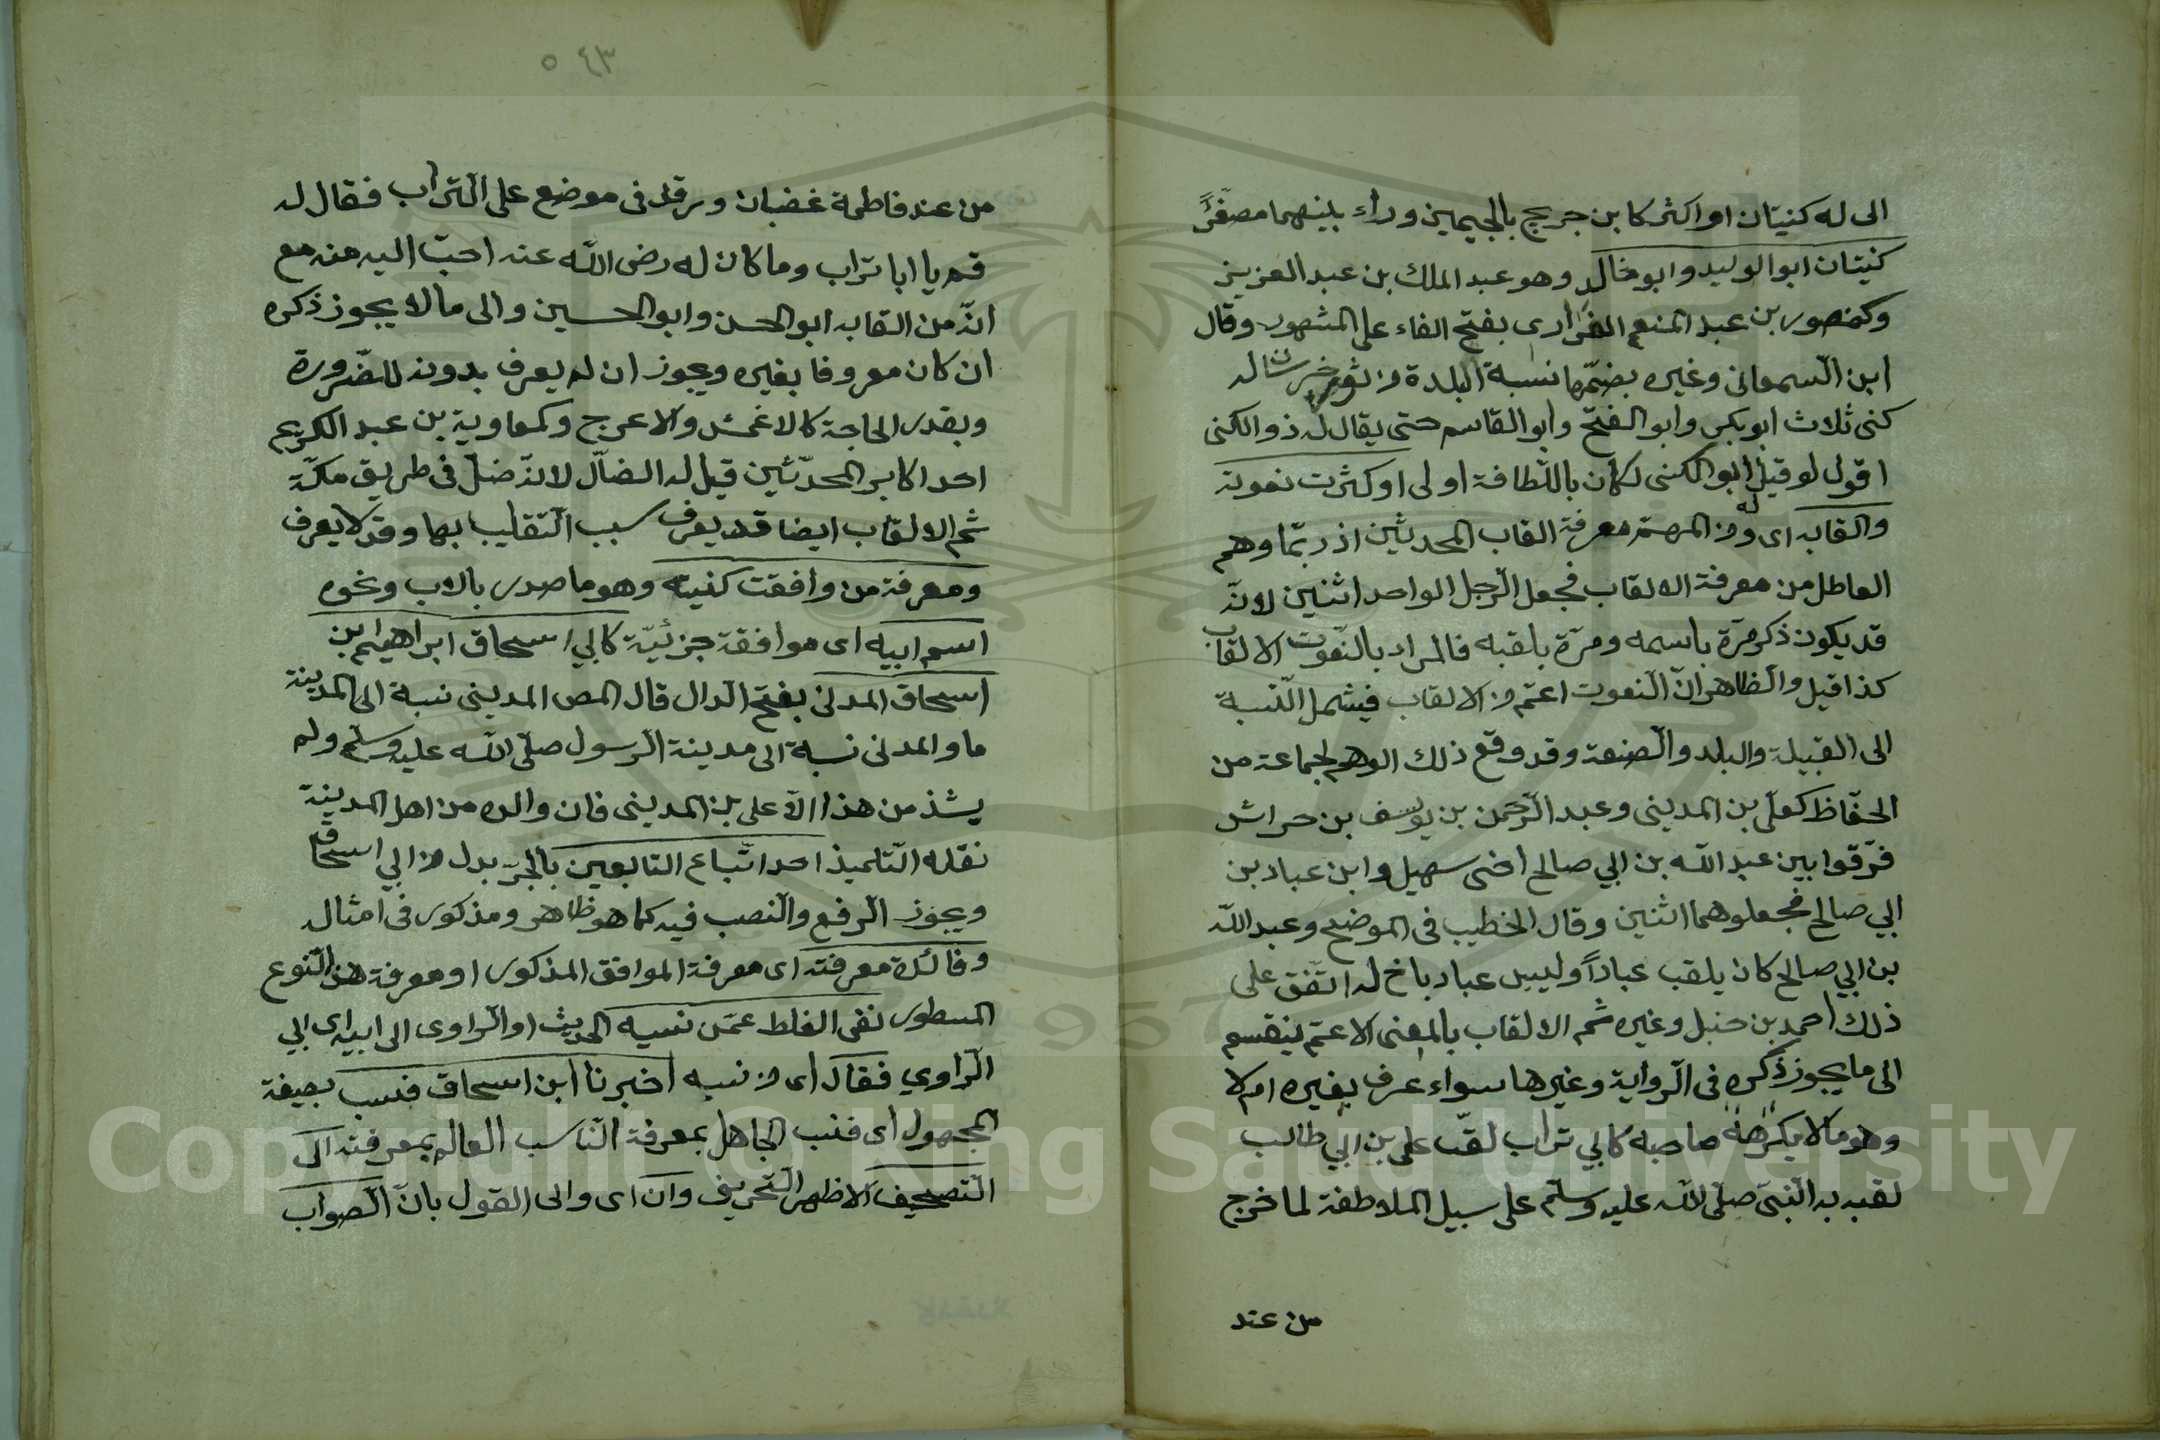 الى له كنيتان او اكثر كابن جريج بالجيمين وراء بينهما مصغرًا
كنيتان ابو الوليد وابو خالد وهو عبد الملك بن عبد العزيز
وكمنصور بن عبد المنعم الفراوى بفتح الفاء على المشهور وقال
ابن السمعانى وغيره بضمّها نسبة البلدة من ثغور خرسان له
كنى ثلاث ابو بكر وابو الفتح وابو القاسم حتى يقال له ذو الكنى
اقول لو قيل ابو الكنى لكان باللّطافة اولى او كثرت نعوته
والقابه اى ومن المهمّ معرفة القاب المحدثين اذ ربّما وهم
العاطل من معرفة الالقاب فجعل الرّجل الواحد اثنين لانّه
قد يكون ذكر مرّة باسمه ومرّة بلقبه فالمراد بالنّعوت الالقاب
كذا قيل والظّاهر انّ النّعوت اعمّ من الالقاب فيشمل النّسبة
الى القبيلة والبلد والصّنعة وقد وقع ذلك الوهم لجماعة من
الحفّاظ كعلى بن المدينى وعبد الرّحمن بن يوسف بن حراش
فرّقوا بين عبد الله بن ابي صالح اخى سهيل وابن عباد بن
ابي صالح فجعلوهما اثنين وقال الخطيب فى الموضح وعبد الله
بن ابي صالح كان يلقب عبادًا وليس عباد باخ له اتّفق على
ذلك احمد بن حنبل وغيره ثم الالقاب بالمعنى الاعمّ ينقسم
الى ما يجوز ذكره فى الرّواية وغيرها سواء عرف بغيره ام لا
وهو مالا يكرهه صاحبه كابي تراب لقّب على بن ابي طالب
لقبه به النّبىّ صلّى الله عليه وسلّم على سبيل الملاطفة لما خرج
من عند
٥٤٣
من عند فاطمة غضبان ورقد فى موضع على التّراب فقال له
قم يا ابا تراب وما كان له رضى الله عنه احبّ اليه منه مع
انّه من القابه ابو الحسن وابو الحسين والى مالا يجوز ذكره
ان كان معروفا بغيره ويجوز ان لم يعرف بدونه للضّرورة
وبقدر الحاجة كالاعمش والاعرج وكمعاوية بن عبد الكريم
احد اكابر المحدّثين قيل له الضالّ لانّه ضلّ فى طريق مكّة
ثم الالقاب ايضا قد يعرف سبب التّقليب بها وقد لا يعرف
ومعرفة من وافقت كنيته وهو ما صدر بالاب ونحوه
اسم ابيه اى موافقة جزئيّة كابي اسحاق ابراهيم بن
اسحاق المدنى بفتح الدال قال المص المدينى نسبة الى المدينة
ما والمدنى نسبة الى مدينة الرّسول صلّى الله عليه وسلّم ولم
يشذ من هذا الاّ على بن المدينى فان والده من اهل المدينة
نقله التّلميذ احد اتباع التابعين بالجرّ بدل من ابي اسحاق
ويجوز الرّفع والنّصب فيه كما هو ظاهر ومذكور فى امثاله
وفائدة معرفته اى معرفة الموافق المذكور او معرفة هذا النّوع
المسطور نفى الغلط عمّن نسبه الحديث او الرّاوى الى ابيه اى ابي
الرّاوي فقال اى من نسبه اخبرنا ابن اسحاق فنسب بصيغة
المجهول اى فنسب الجاهل بمعرفة النّاسب العالم بمعرفته الى
التصحيف الاظهر التّحريف وان اى والى القول بانّ الصّواب
Copyright © King Saud University
1957